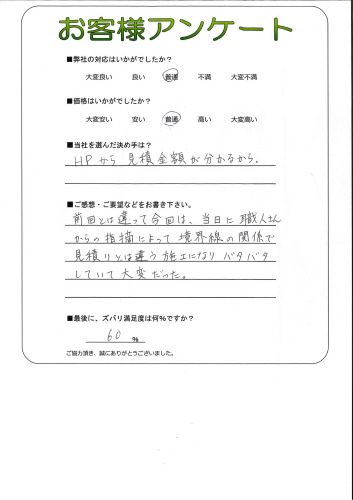 お客様アンケート
■弊社の対応はいかがでしたか?
大変良い 良い 普通 不満 大変不満
■価格はいかがでしたか?
大変安い 安い 普通 高い 大変高い
■当社を選んだ決め手は?
HPから見積金額が分かるから。
■ご感想・ご要望などをお書き下さい。
前回とは違って今回は、当日に職人さん
からの指摘によって境界線の関係で
見積りとは違う施工になりバタバタ
していて大変だった。
■最後に、ズバリ満足度は何%ですか?
60 %
ご協力頂き、誠にありがとうございました。